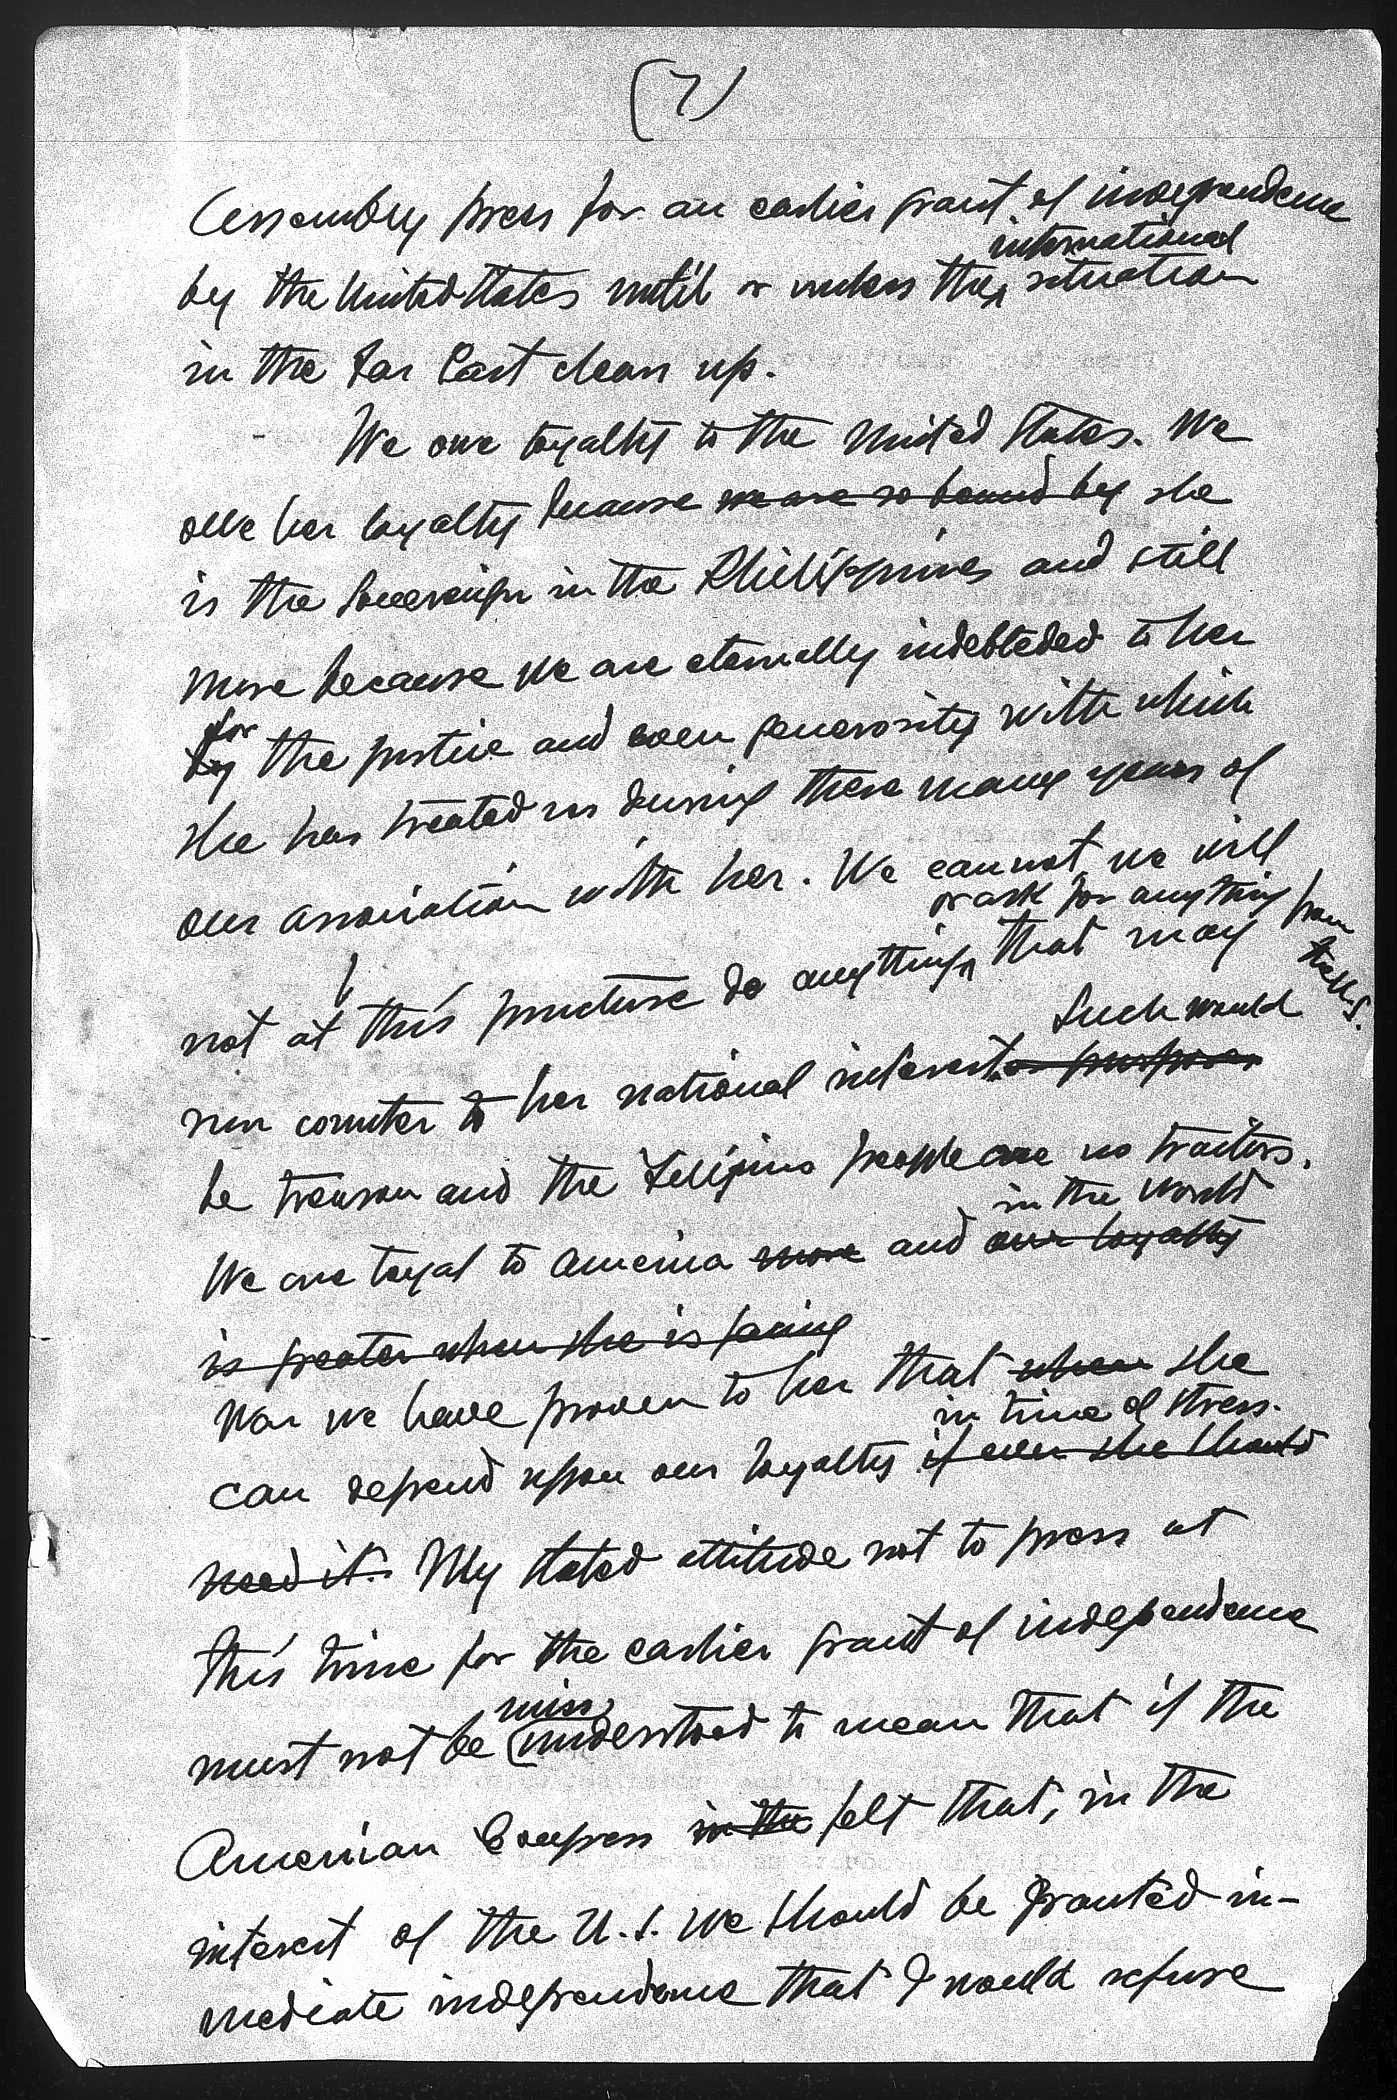 (7)
Assembly press for an earlier grant of independence
international
by the United States until or unless the situation
in the Far East clears up.
We owe loyalty to the United States. We
owe her loyalty because we are so bound by she
is the Sovereign in the Philippines and still
more because we are eternally indebteded to her
for
by the justice and even generosity with which
she has treated us during these many years of
our association with her. We cannot, we will
or ask for anything from
the U.S.
not at this juncture do anything that may
Such would
run counter to her national interest or purposes
be treason and the Filipino people are no traitors.
in the World
We are loyal to America more and our loyalty
is greater when she is facing
War we have proven to her that when she
in time of stress.
can depend upon our loyalty if ever she should
need it. My stated attitude not to press at
this time for the earlier grant of independence
miss
must not be understood to mean that if the
American Congress in the felt that, in the
interest of the U.S. we should be granted im-
mediate independence that I would refuse